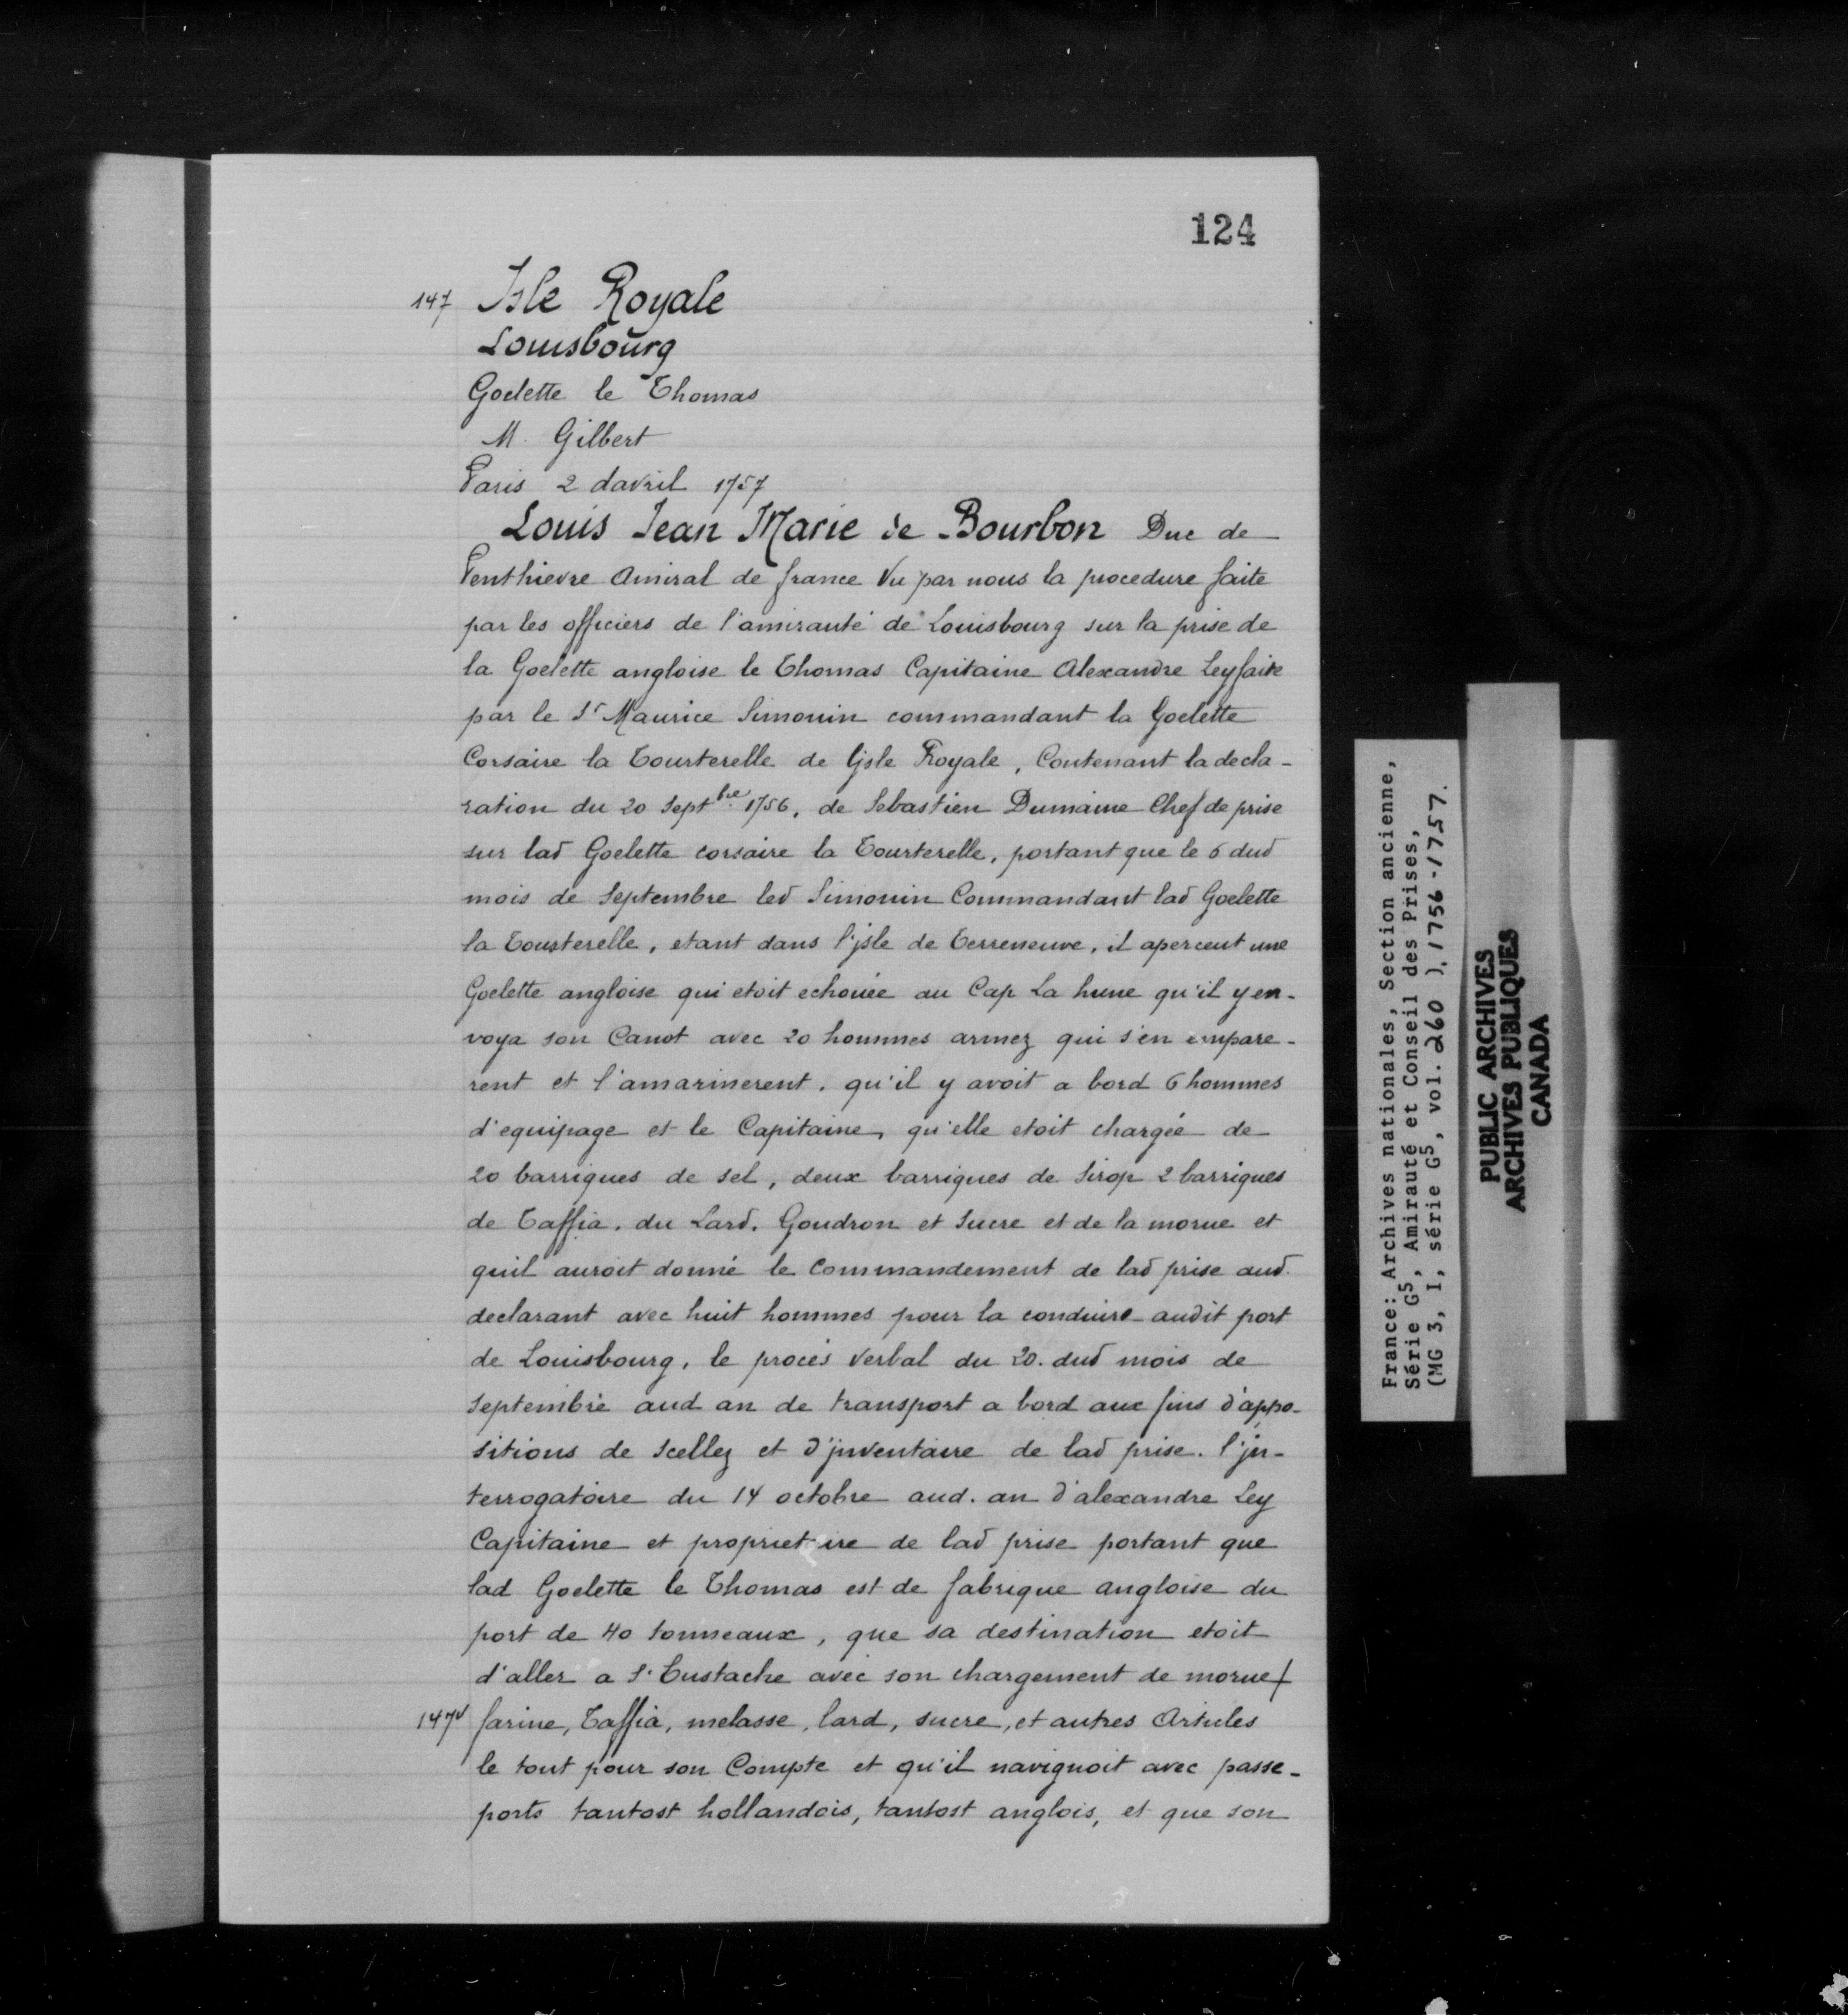 124
147 Isle Royale
Louisbourg
Goelette le Thomas
M. Gilbert
Paris 2 davril 1757
Louis Jean Marie de Bourbon Duc de
Penthievre Amiral de france Vu par nous la procedure faite
par les officiers de l'amirauté de Louisbourg sur la prise de
la Goelette angloise le Thomas Capitaine Alexandre Ley faite
par le Sr Maurice Simonin commandant la Goelette
Corsaire la Tourterelle de l'jsle Royale, Contenant la decla-
ration du 20 Septbre 1756, de Sebastien Dumaine Chef de prise
sur lad Goelette corsaire la Tourterelle, portant que le 6 dud
mois de Septembre led Simonin Commandant lad Goelette
la Tourterelle, etant dans l'jsle de Terreneuve, il aperceut une
Goelette angloise qui etoit echouée au Cap La hune qu'il y en-
voya son Canot avec 20 hommes armez qui s'en empare-
rent et l'amarinerent, qu'il y avoit a bord 6 hommes
d'equipage et le Capitaine, qu'elle etoit chargée de
20 barriques de sel, deux barriques de Sirop 2 barriques
de Taffia, du Lard, Goudron et Sucre et de la morue et
quil auroit donné le Commandement de lad prise aud.
declarant avec huit hommes pour la conduire audit port
de Louisbourg, le procès Verbal du 20. dud mois de
Septembre aud an de transport a bord aux fins d'appo-
sitions de Scellez et d'jnventaire de lad prise. l'jn-
terrogatoire du 14 octobre aud. an d'alexandre Ley
Capitaine et propriet ire de lad prise portant que
lad Goelette le Thomas est de fabrique angloise du
port de 40 tonneaux, que sa destination etoit
d'aller a St Eustache avec son chargement de morue/
147v farine, Taffia, melasse, lard, sucre, et autres Articles
le tout pour son Compte et qu'il navignoit avec passe-
ports tantost hollandois, tantost anglois, et que son
France: Archives nationales, Section ancienne,
Série G5, Amirauté et Conseil des Prises,
(MG 3, I, série G5, vol. 260 ), 1756-1757.
PUBLIC ARCHIVES
ARCHIVES PUBLIQUES
CANADA